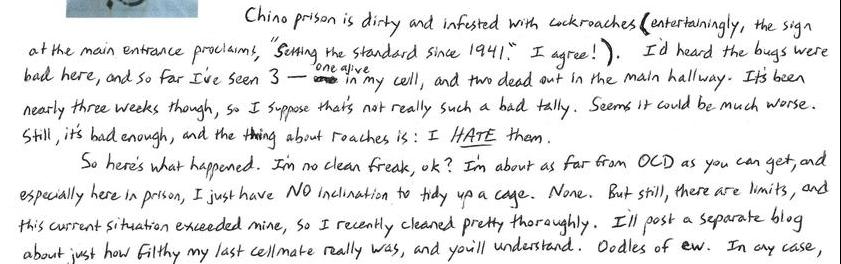 Chino prison is dirty and infested with cockroaches (entertainingly, the sign
at the main entrance proclaims, "Setting the standard since 1941." I agree!). I'd heard the bugs were
bad here, and so far I've seen 3 — one alive in my cell, and two dead out in the main hallway. It's been
nearly three weeks though, so I suppose that's not really such a bad tally. Seems it could be much worse.
Still, it's bad enough, and the thing about roaches is: I HATE them.
So here's what happened. I'm no clean freak, ok? I'm about as far from OCD as you can get, and
especially here in prison, I just have NO inclination to tidy up a cage. None. But still, there are limits, and
this current situation exceeded mine, so I recently cleaned pretty thoroughly. I'll post a separate blog
about just how filthy my last cellmate really was, and you'll understand. Oodles of ew. In any case,